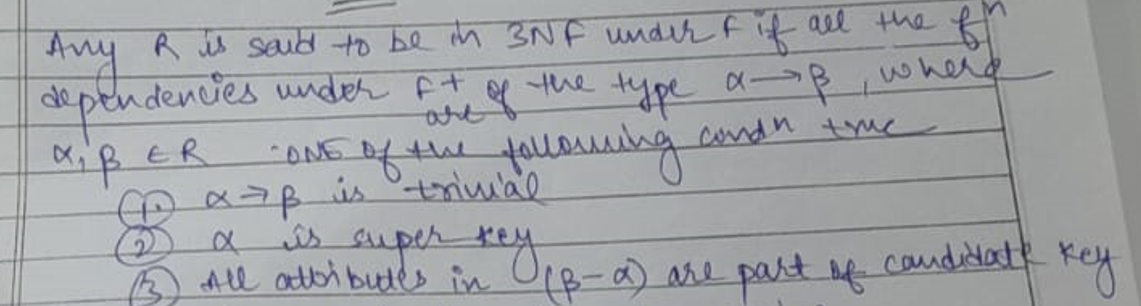 Any R is said to be in 3NF under F if all the fn
dependencies under F+ of the type α→β, where
are
α, β ∈ R ONE of the following condn true
① α→β is trivial
② α is super key
③ All attributes in (β-α) are part of candidate key